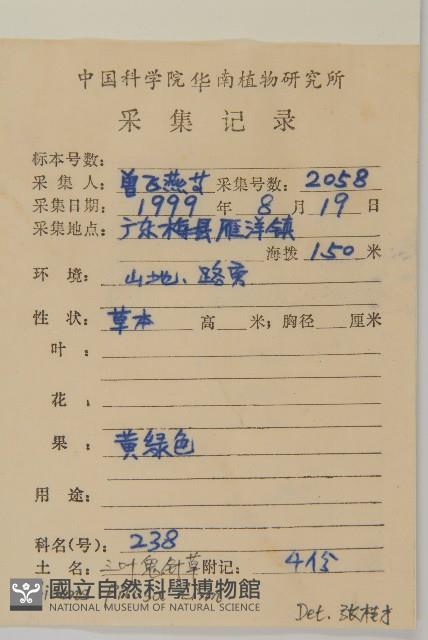 中国科学院华南植物研究所
采集记录
标本号数:
采集人: 曾飞燕 采集号数: 2058
采集日期: 1999年8月19日
采集地点: 广东梅县雁洋镇
海拨150米
环境: 山地、路旁
性状: 草本 高 米; 胸径 厘米
叶:
花:
果: 黄绿色
用途:
科名(号): 238
土名: 三叶鬼针草 附记: 4份
國立自然科學博物館
NATIONAL MUSEUM OF NATURAL SCIENCE
Det. 张桂才